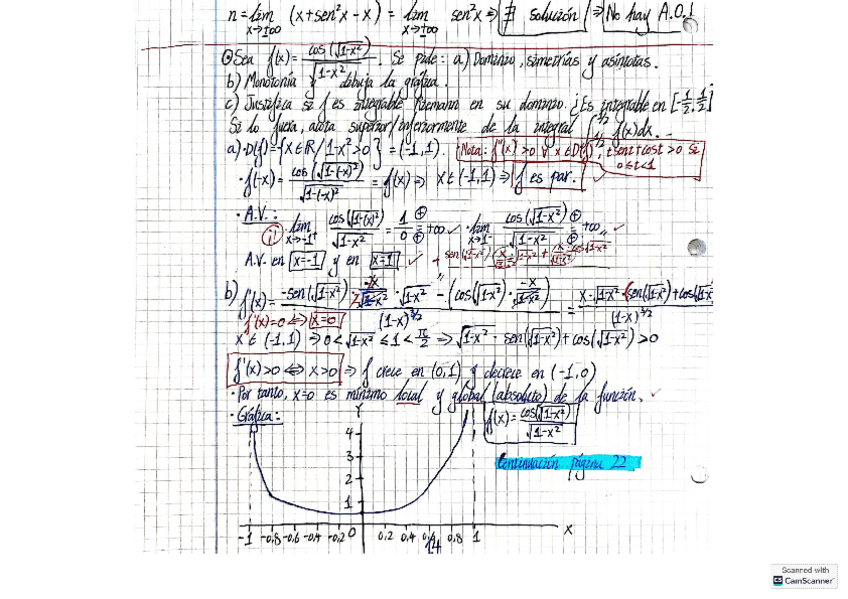 n = lim x→±∞ (x+sen²x - x) = lim x→±∞ sen²x ⇒ ∄ solución ⇒ No hay A.O.!
Sea f(x) = cos(√1-x²)/√1-x². Se pide: a) Dominio, simetrías y asíntotas.
b) Monotonía y dibuja la gráfica.
c) Justifica si f es integrable Riemann en su dominio. ¿Es integrable en [-1/2, 1/2]
Si lo fuera, acota superior/inferiormente de la integral ∫ f(x)dx.
a) · D(f) = {x∈ℝ / 1-x²>0} = (-1,1). Nota: f''(x) >0 ∀ x∈D(f), t sent + cost > 0 si
0≤t<1
· f(-x) = cos(√1-(-x)²)/√1-(-x)² = f(x) ⇒ x∈(-1,1) ⇒ f es par.
· A.V.: lim x→-1⁺ cos(√1-(x)²)/√1-x² = 1/0 = +∞ ✓ · lim x→1⁻ cos(√1-x²)/√1-x² = +∞ ✓
A.V. en x=-1 y en x=1 ✓
b) f'(x) = -sen(√1-x²) · -x/√1-x² · √1-x² - (cos(√1-x²) · -x/√1-x²) = x·√1-x² · (sen(√1-x²)+cos(√1-x
f'(x)=0 ⇔ x=0 (1-x)^3/2 (1-x)^3/2
x∈(-1,1) ⇒ 0<√1-x² ≤ 1 < π/2 ⇒ √1-x² · sen(√1-x²)+cos(√1-x²) >0
f'(x)>0 ⇔ x>0 ⇒ f crece en (0,1) y decrece en (-1,0)
· Por tanto, x=0 es mínimo local y global (absoluto) de la función. ✓
· Gráfica: Y f(x) = cos(√1-x²)/√1-x²
4
Continuación página 22
3
2
1
-1 -0,8 -0,6 -0,4 -0,2 0 0,2 0,4 0,6 0,8 1 X
14
Scanned with
CS CamScanner